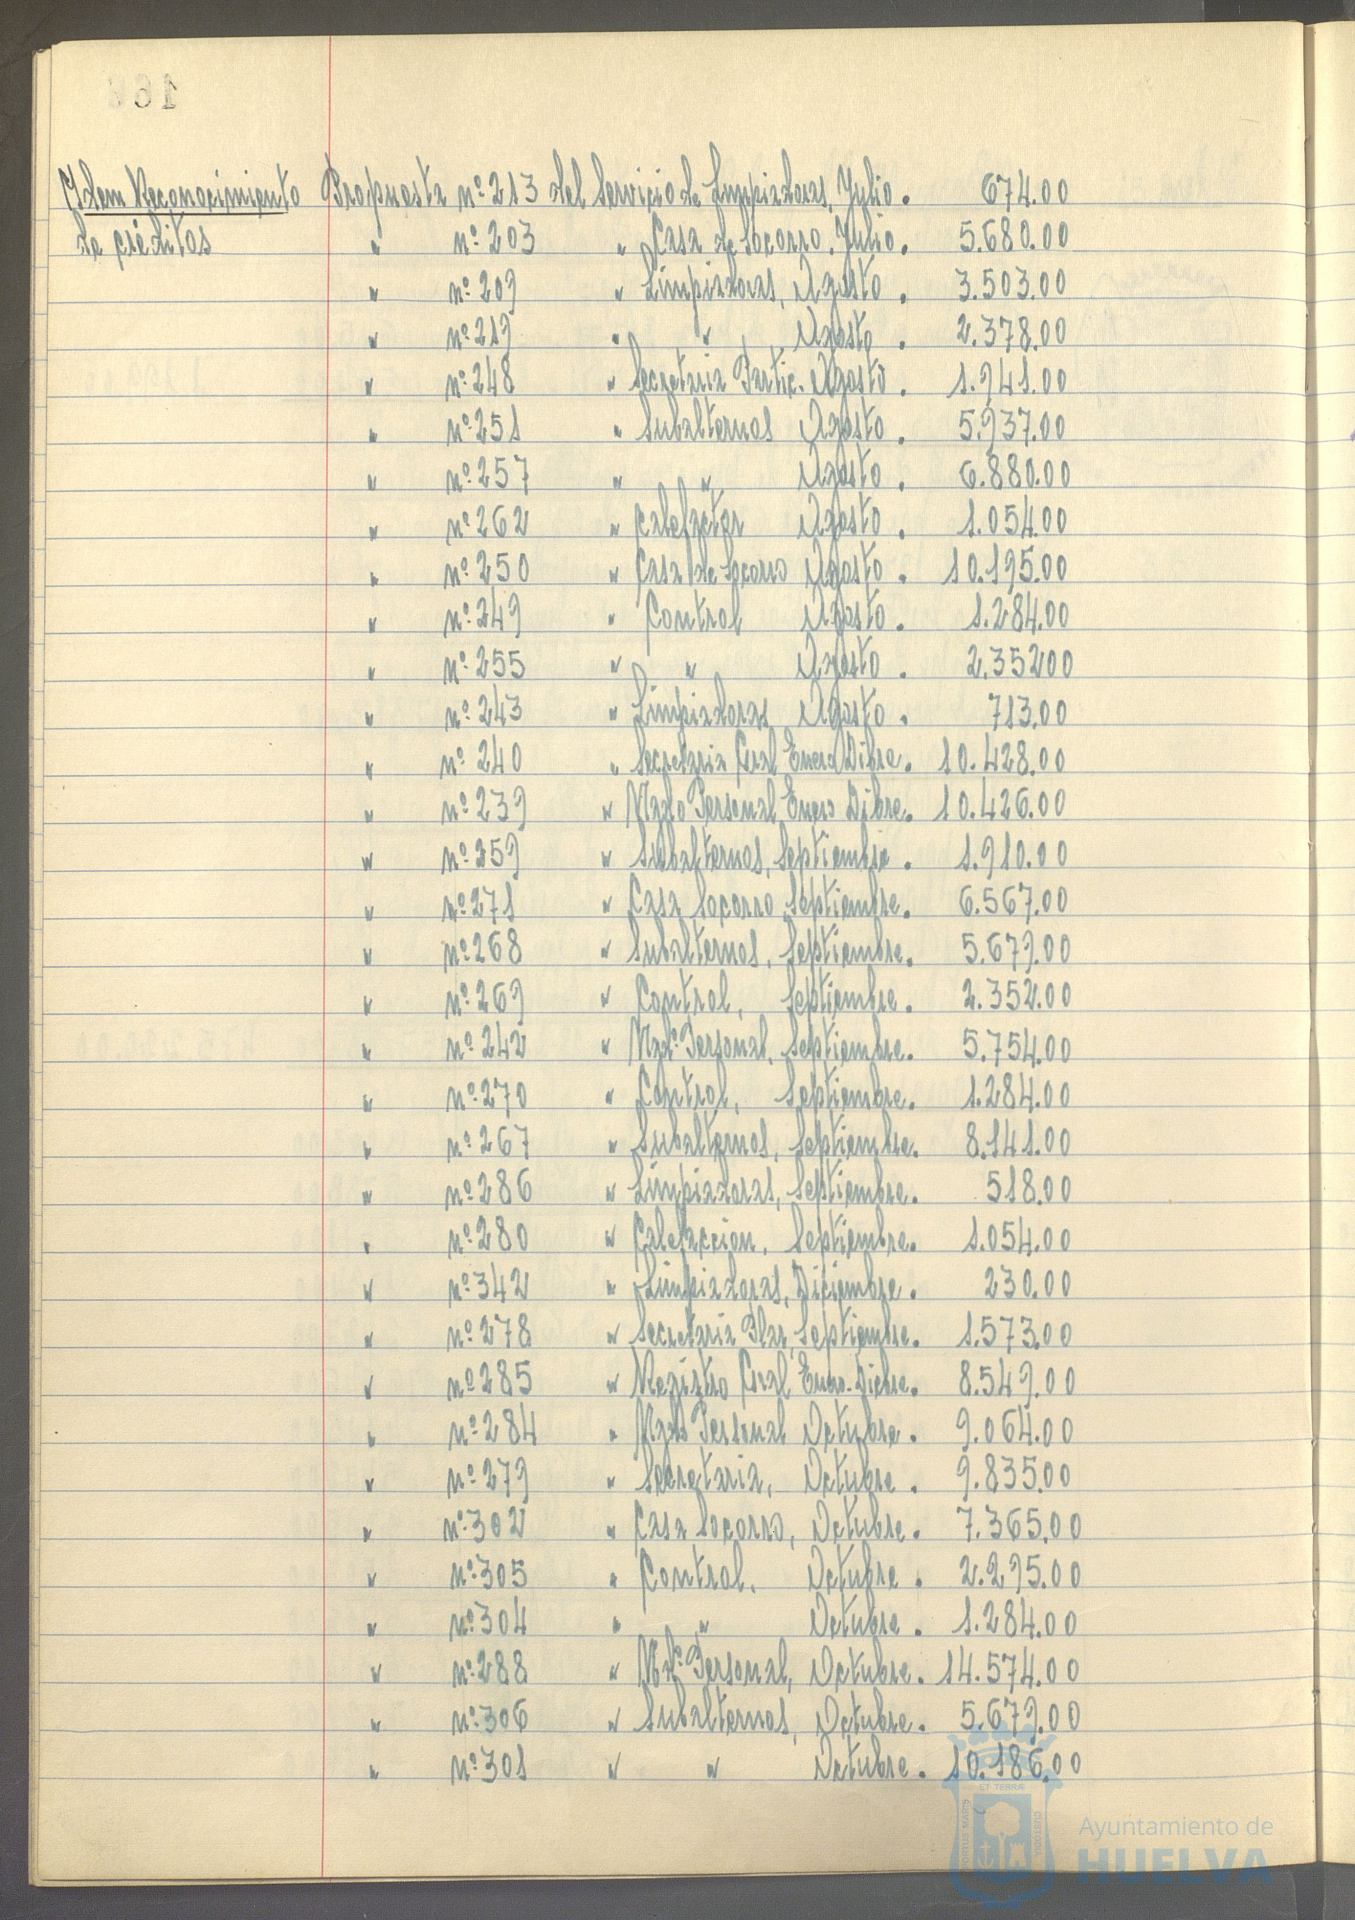 Idem Reconocimiento Propuesta nº 213 del Servicio de Limpiadoras, Julio. 674.00
de créditos " nº 203 " Casa de Socorro. Julio. 5.680.00
" nº 209 " Limpiadoras, Agosto . 3.503.00
" nº 219 " " Agosto . 2.378.00
" nº 248 " Secretaria Partic. Agosto . 1.941.00
" nº 251 " Subalternos Agosto . 5.937.00
" nº 257 " " Agosto . 6.880.00
" nº 262 " Calefactor Agosto . 1.054.00
" nº 250 " Casa de Socorro Agosto . 10.195.00
" nº 249 " Control Agosto . 1.284.00
" nº 255 " " Agosto . 2.35200
" nº 243 " Limpiadoras Agosto . 713.00
" nº 240 " Secretaria Gral Enero Dibre. 10.428.00
" nº 239 " Nado Personal Enero Dibre. 10.426.00
" nº 259 " Subalternos, Septiembre . 1.910.00
" nº 271 " Casa Socorro, Septiembre. 6.567.00
" nº 268 " Subalternos, Septiembre. 5.679.00
" nº 269 " Control, Septiembre. 2.352.00
" nº 242 " Nadº Personal, Septiembre. 5.754.00
" nº 270 " Control, Septiembre. 1.284.00
" nº 267 " Subalternos, Septiembre. 8.141.00
" nº 286 " Limpiadoras, Septiembre. 518.00
" nº 280 " Calefaccion, Septiembre. 1.054.00
" nº 342 " Limpiadoras, Diciembre. 230.00
" nº 278 " Secretaria Plar, Septiembre. 1.573.00
" nº 285 " Registro Gral Enero-Dicbre. 8.549.00
" nº 284 " Nado Personal Octubre. 9.064.00
" nº 279 " Secretaria, Octubre. 9.835.00
" nº 302 " Casa Socorro, Octubre. 7.365.00
" nº 305 " Control, Octubre . 2.295.00
" nº 304 " " Octubre . 1.284.00
" nº 288 " Ndº Personal, Octubre. 14.574.00
" nº 306 " Subalternos, Octubre. 5.679.00
" nº 301 " " Octubre. 10.186.00
ET TERRÆ
PORTUS MARIS CUSTODIA
Ayuntamiento de
HUELVA